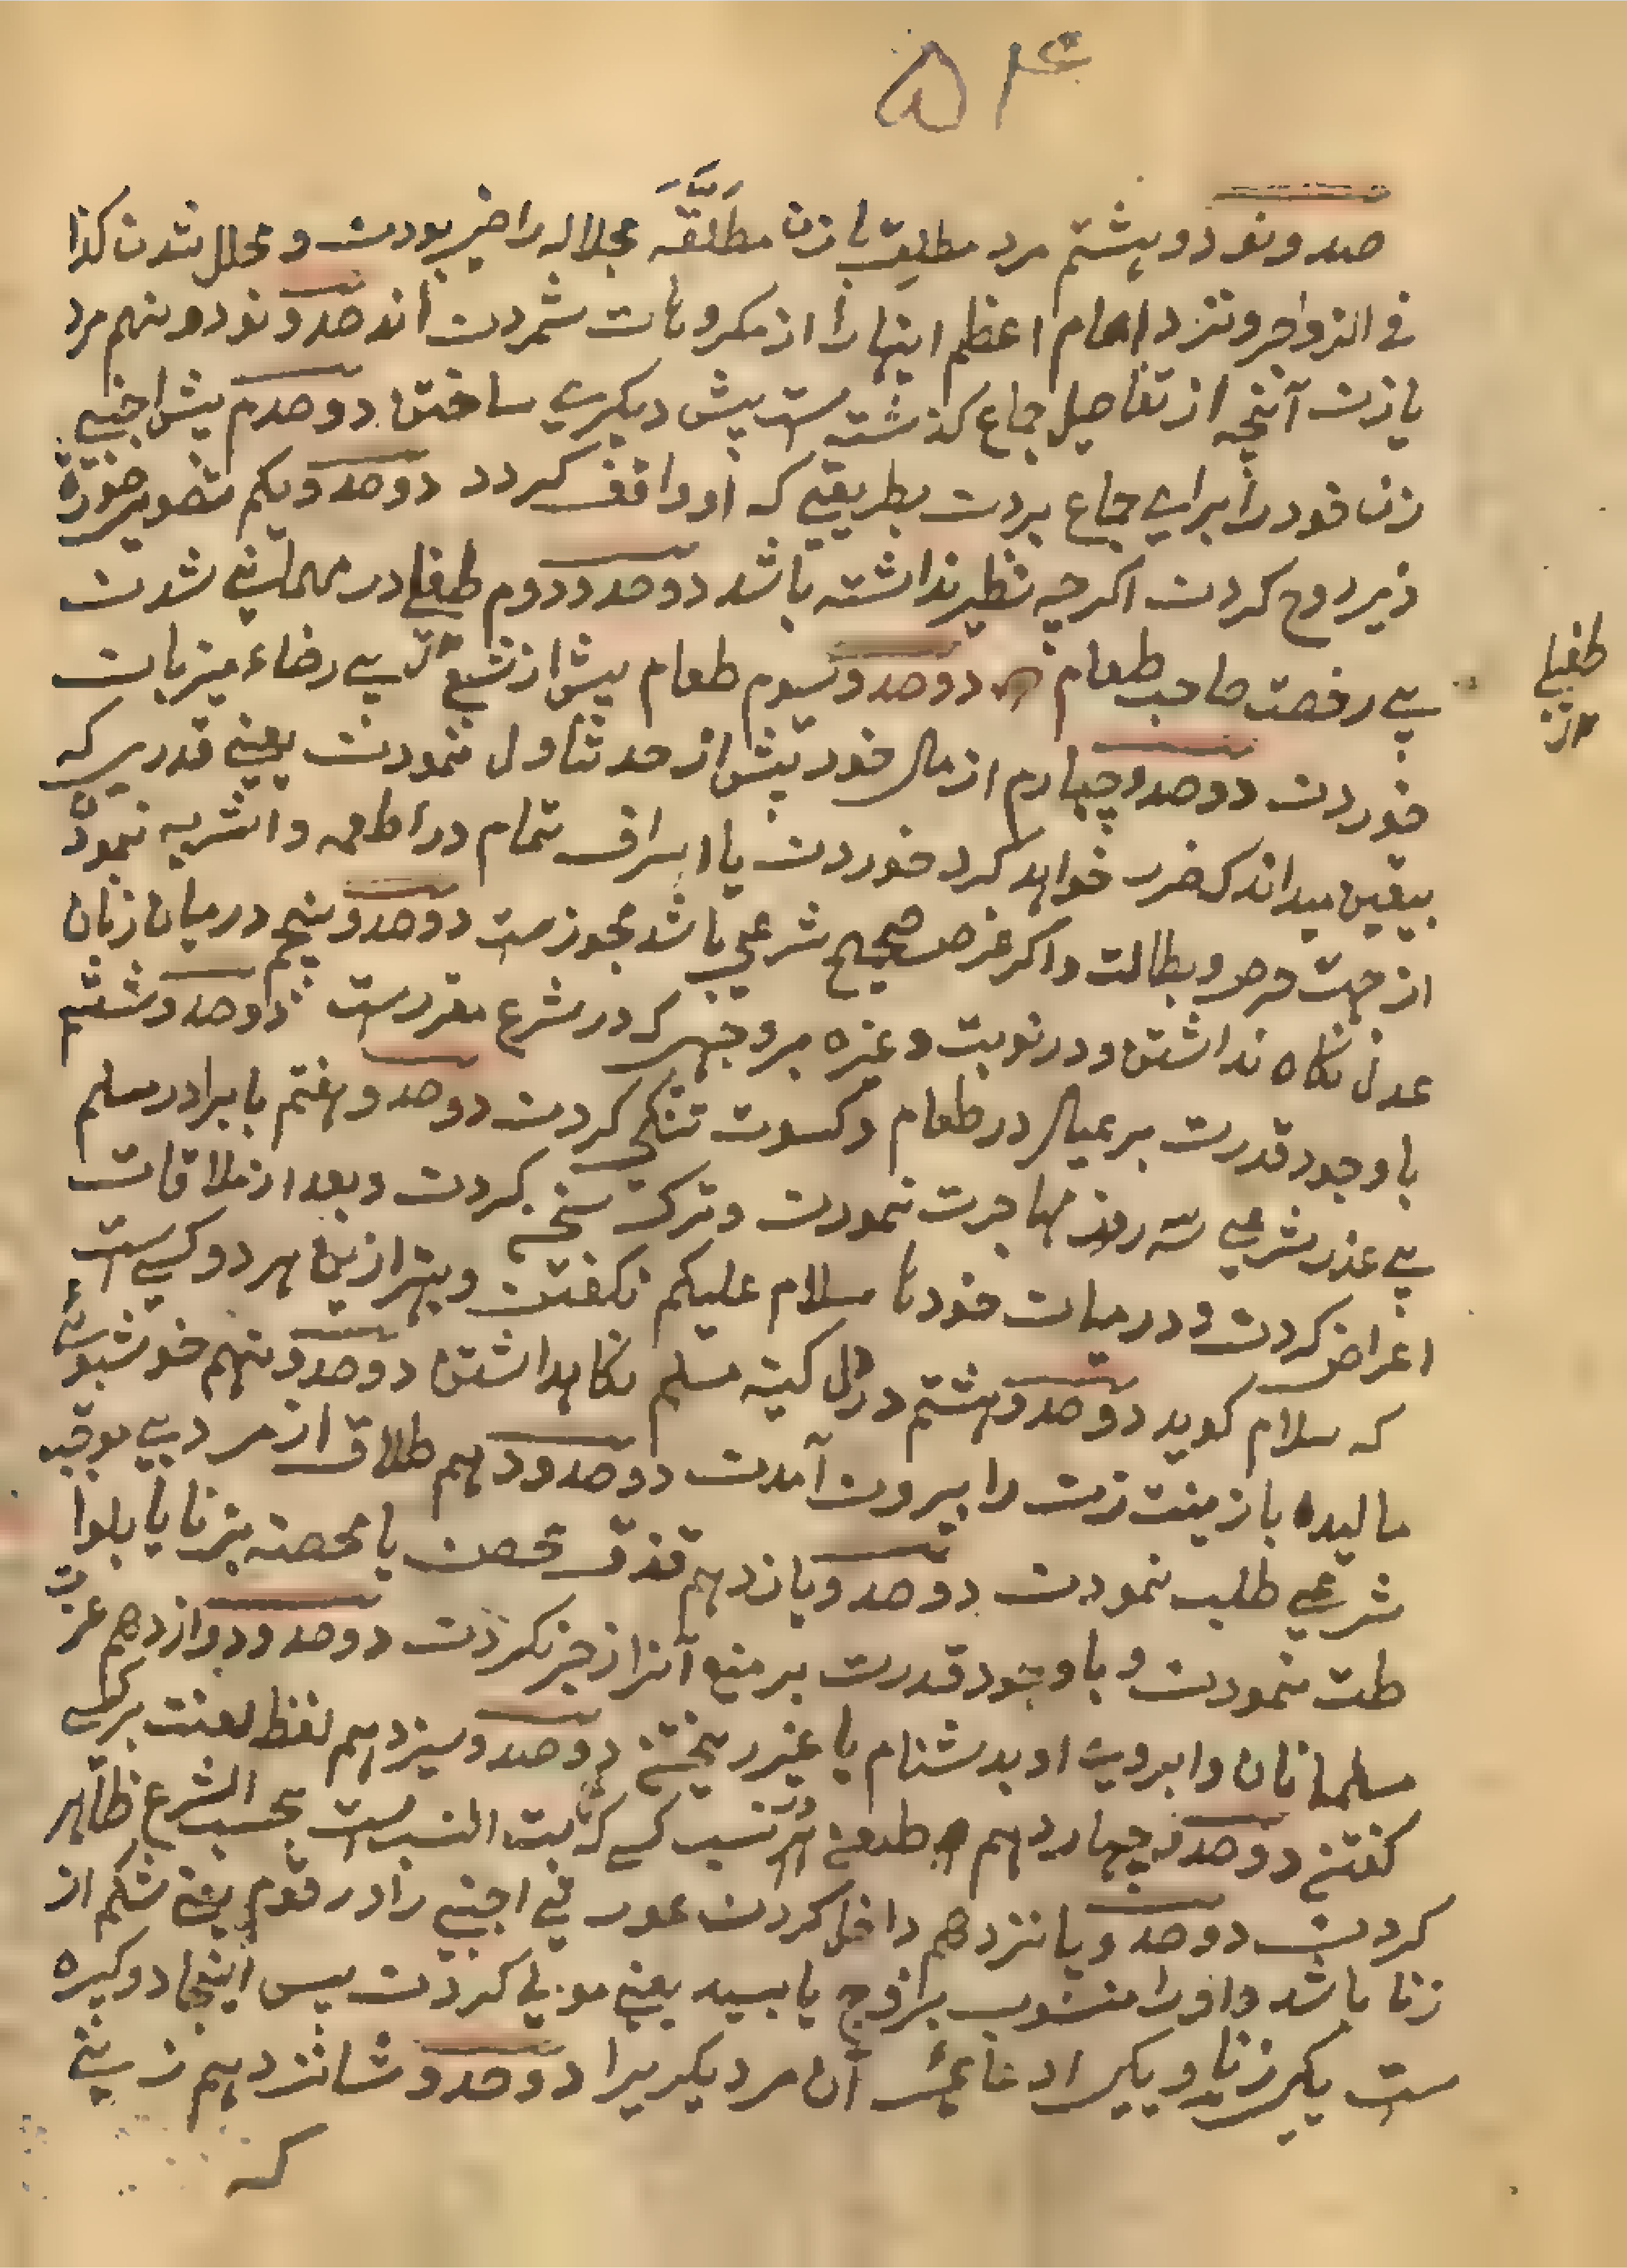 ۵۴
صد و نود و هشتم مرد مطلِّق با زن مطلَّقَه بحلاله راضی بودن و محلل شدن کذا
فی الزواجر و نزد امام اعظم اینها را از مکروهات شمردن اند صد و نود و نهم مرد
یا زن آنچه از تفاصیل جماع کذشته است پیش دیکری ساختن دو صدم پیش اجنبی
زن خود را برای جماع بردن بطریقی که او واقف کردد دو صد و یکم تصویر صورة
ذیروح کردن اکرچه نظیر نداشته باشد دو صد و دوم طفلی در مهمانی شدن
بی رخصت صاحب طعام دو صد و سیوم طعام بیش از شبع بی رضاء میزبان
طفیلی
خوردن دو صد و چهارم از مال خود بیش از حد تناول نمودن یعنی قدری که
بیقین میداند که ضرر خواهد کرد خوردن یا اسراف تمام در اطعمه و اشربه نمودن
از جهت حرص و بطالت و اکر غرض صحیح شرعی باشد مجوزست دو صد و پنجم درمیان زنان
عدل نکاه نداشتن و در نوبت و غیره بر وجهی که در شرع مقررست دو صد و ششم
با وجود قدرت بر عیال در طعام و کسوت تنکی کردن دو صد و هفتم با برادر مسلم
بی عذر شرعی سه روز مهاجرت نمودن و ترک سخن کردن و بعد از ملاقات
اعراض کردن و درمیان خودها سلام علیکم نکفتن و بهتر ازین هر دو کسی ست
که سلام کوید دو صد و هشتم در دل کینه مسلم نکاهداشتن دو صد و نهم خوشبوئ
مالیده با زینت زن را بیرون آمدن دو صد و دهم طلاق از مرد بی موجب
شرعی طلب نمودن دو صد و یازدهم قذف محصن یا محصنه بزنا یا بلوا
طت نمودن و با وجود قدرت بر منع آنرا زجر نکردن دو صد و دوازدهم عزت
مسلمانان و ابروی او بدشنام یا غیر ریختن دو صد و سیزدهم لفظ لعنت بر کسی
کفتن دو صد و چهاردهم طعن در نسب کسی که ثابت النسب است بحسب الشرع ظاهر
کردن دو صد و پانزدهم داخل کردن عورتی اجنبی را در قوم یعنی شکم از
زنا باشد و او را منسوب بزوج یا بسید یعنی مولی کردن پس اینجا دو کبیره
ست یکی زنا و یکی ادعای آن مرد یکری را دو صد و شانزدهم زنی
که